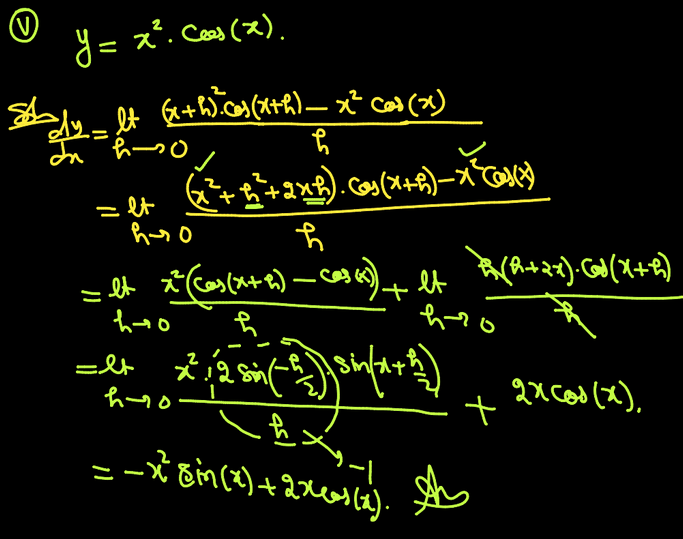 (V) y = x². cos(x).
Sol dy/dx = lt h→0 ((x+h)².cos(x+h) − x² cos(x))/h
= lt h→0 ((x² + h² + 2xh).cos(x+h) − x² cos(x))/h
= lt h→0 x²(cos(x+h) − cos(x))/h + lt h→0 h(h+2x).cos(x+h)/h
= lt h→0 x².2 sin(−h/2).sin(x+h/2)/h + 2x cos(x).
→ −1
= −x² sin(x) + 2x cos(x). An